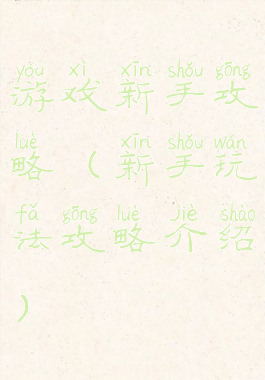 yóu xì xīn shǒu gōng
游戏新手攻
luè xīn shǒu wán
略（新手玩
fǎ gōng luè jiè shào
法攻略介绍
）